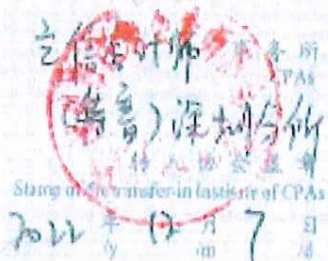 立信会计师事务所
CPAs
(特普)深圳分所
转入协会盖章
Stamp of the transfer-in Institute of CPAs
2022年12月7日
/y /m /d